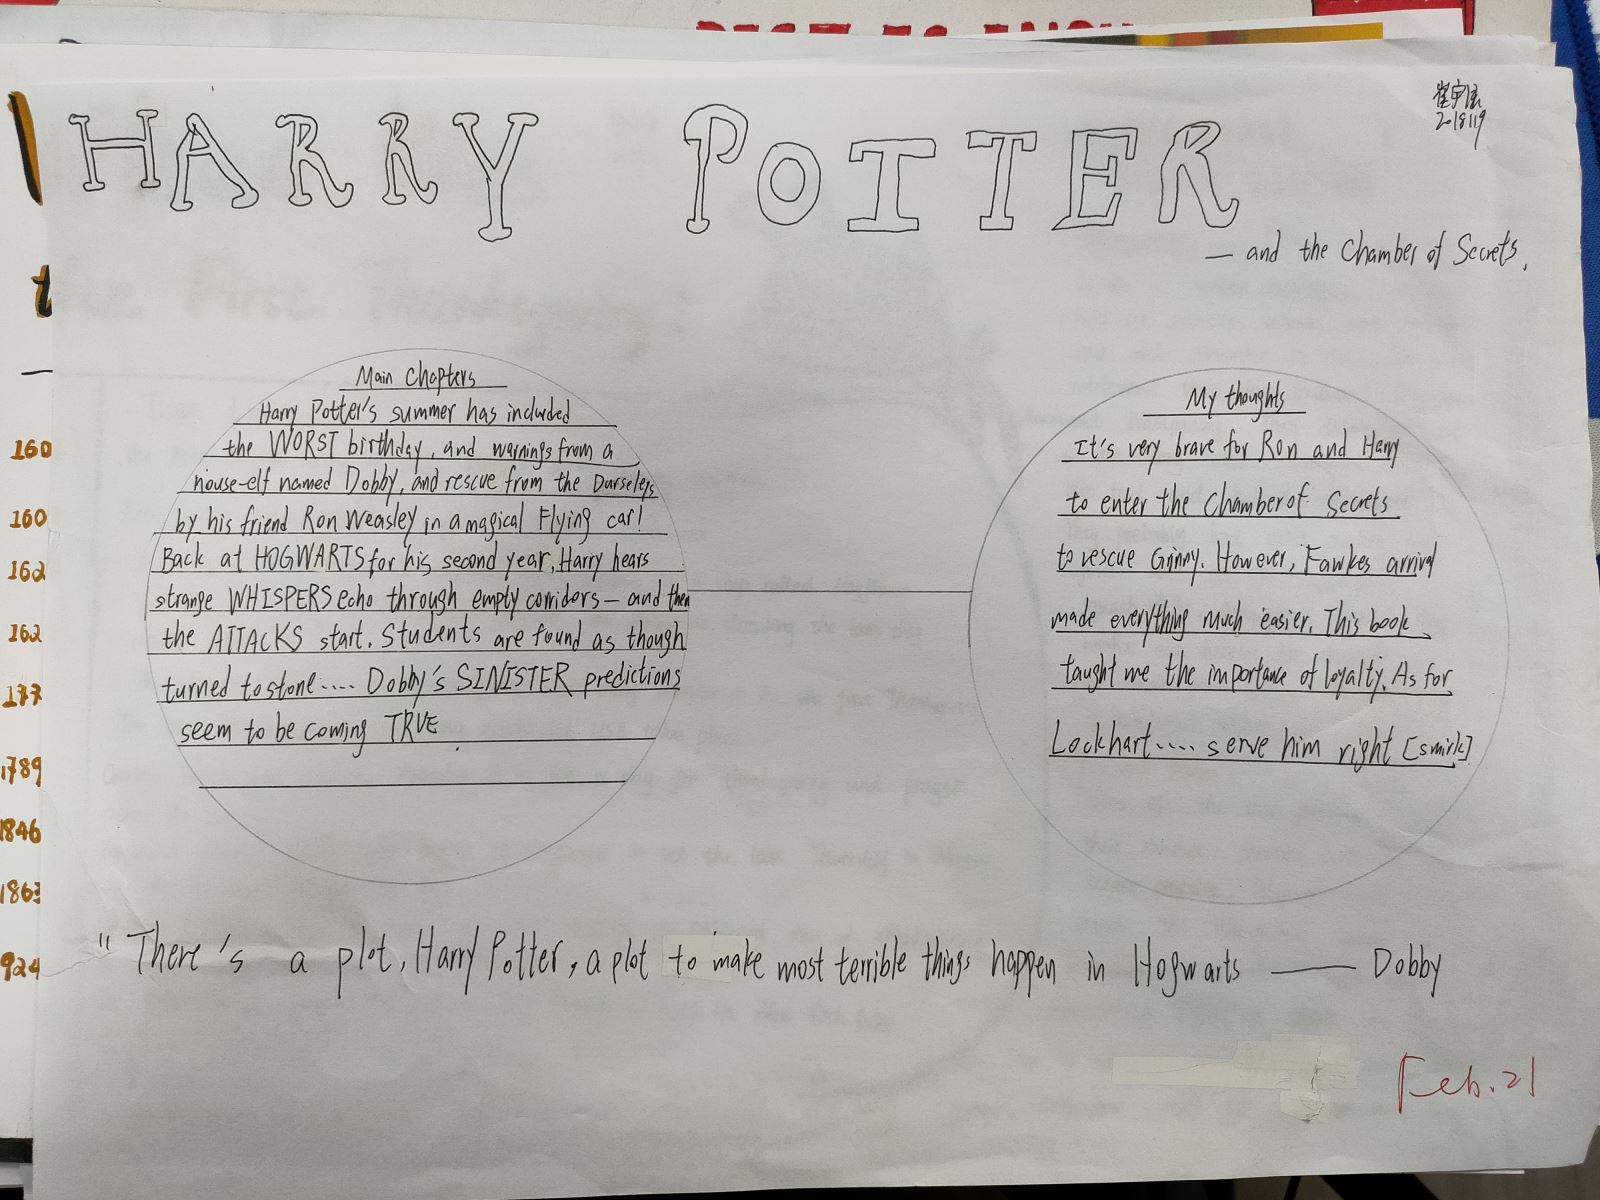 HARRY POTTER
崔宇
2018119
— and the Chamber of Secrets.
Main Chapters
Harry Potter's summer has included
the WORST birthday, and warnings from a
house-elf named Dobby, and rescue from the Durseleys
by his friend Ron Weasley in a magical Flying car!
Back at HOGWARTS for his second year, Harry hears
strange WHISPERS echo through empty corridors — and then
the ATTACKS start. Students are found as though
turned to stone.... Dobby's SINISTER predictions
seem to be coming TRUE
My thoughts
It's very brave for Ron and Harry
to enter the Chamber of Secrets
to rescue Ginny. However, Fawkes arrival
made everything much easier. This book
taught me the importance of loyalty. As for
Lockhart.... serve him right [smirk]
"There's a plot, Harry Potter, a plot to make most terrible things happen in Hogwarts —— Dobby
Feb. 21
160
160
162
162
177
1789
1846
1863
924